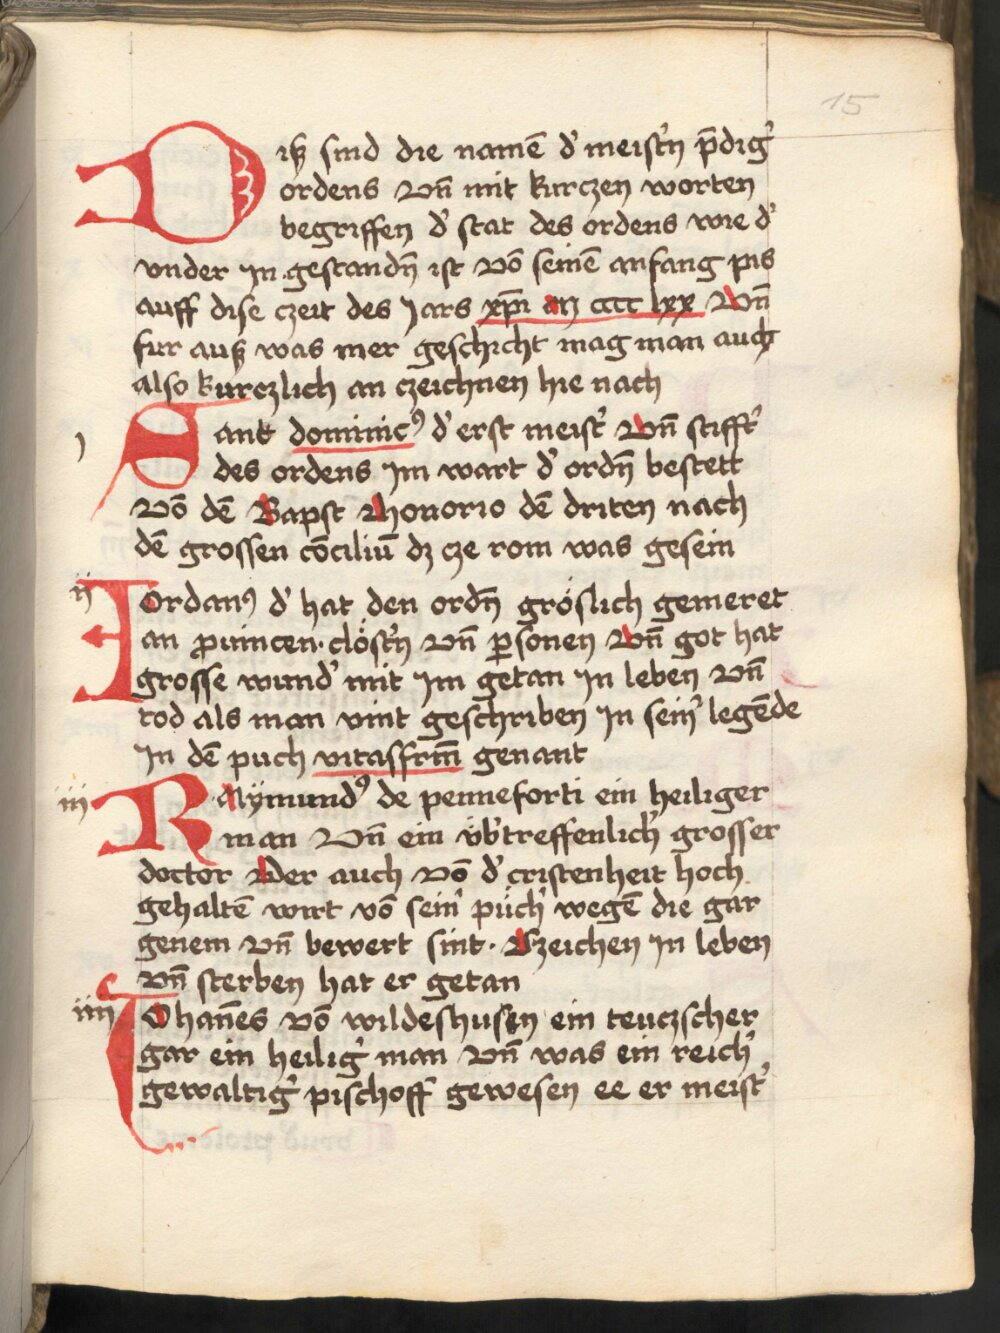 15
Diß sind die namē d' meist'n p̄dig'
ordens vn̄ mit kurczen worten
begriffen d' stat des ordens wie d'
vnder jn gestandn̄ ist vō seinē anfang pis
auff dise czeit des jars xp̄i an cccc lxx vn̄
fur auß was mer geschicht mag man auch
also kurczlich an czeichnen hie nach
j Sant dominic⁹ d' erst meist' vn̄ stifft'
des ordens jm wart d' ordn̄ bestett
vō dē Bapst Honorio dē driten nach
dē grossen cōciliū dz cze rom was gesein
ij Jordan⁹ d' hat den ordn̄ gröslich gemeret
an ꝓuincen · clöst'n vn̄ ꝑsonen vn̄ got hat
grosse wund' mit jm getan jn leben vn̄
tod als man vint geschriben jn sein' legēde
jn dē puch vitasfrm̄ genant
iij Raÿmund⁹ de penneforti ein heiliger
man vn̄ ein vb'treffenlich' grosser
doctor Der auch vō d' cristenheit hoch
gehaltē wirt vō sein' püch' wegē die gar
genem vn̄ bewert sint · Czeichen jn leben
vn̄ sterben hat er getan
iiij Johan̄es vō wildeshusen ein teuczscher
gar ein heilig' man vn̄ was ein reich'
gewaltig' pischoff gewesen ee er meist'